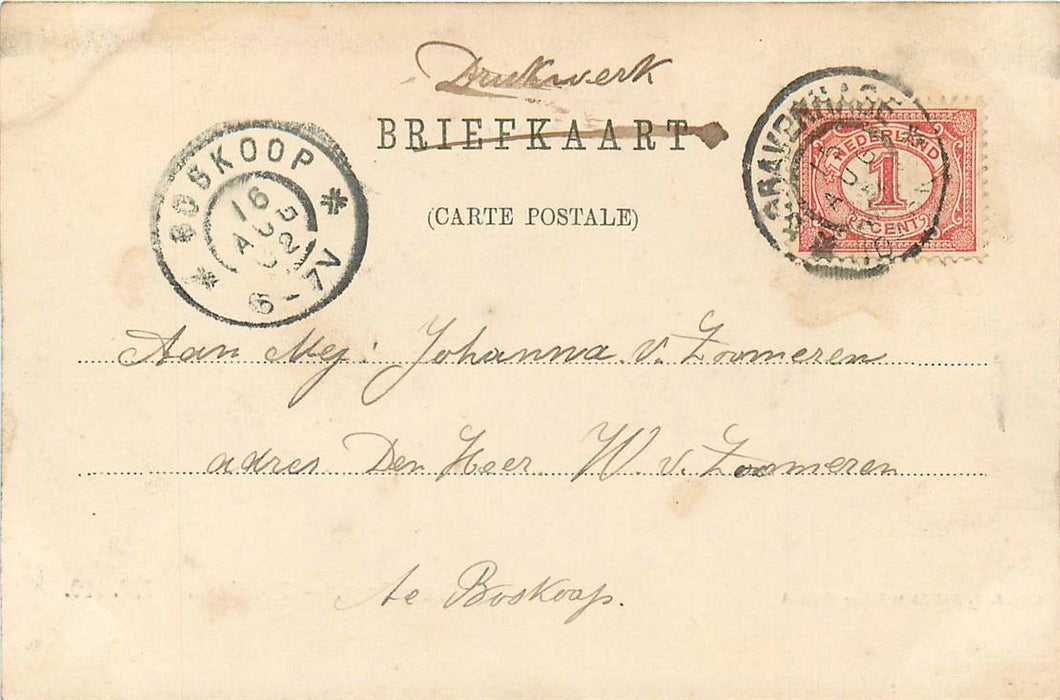 Drukwerk
BRIEFKAART
(CARTE POSTALE)
BOSKOOP
16
AUG
02
6-7V
'S-GRAVENHAGE
NEDERLAND
1
CENT
Aan Mej: Johanna v. Zoomeren
adres Den Heer W. v. Zoomeren
te Boskoop.